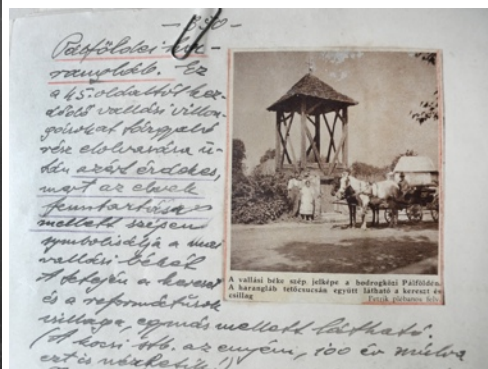 — 390 —
Pálföldei ha-
rangláb. Ez
a 45. oldaltól kez-
dődő vallási villon-
gásokat tárgyaló
rész elolvasása u-
tán azért érdekes,
mert az elvek
fenntartása
mellett szépen
symbolizálja a mai
vallási békét
A tetején a kereszt
és a reformátusok
csillaga, egymás mellett látható.
(A kocsi stb. az enyém, 100 év múlva
ezt is nézhetik!)
A vallási béke szép jelképe a bodrogközi Pálföldén.
A harangláb tetőcsucsán együtt látható a kereszt és
csillag
Petzik plébános felv.